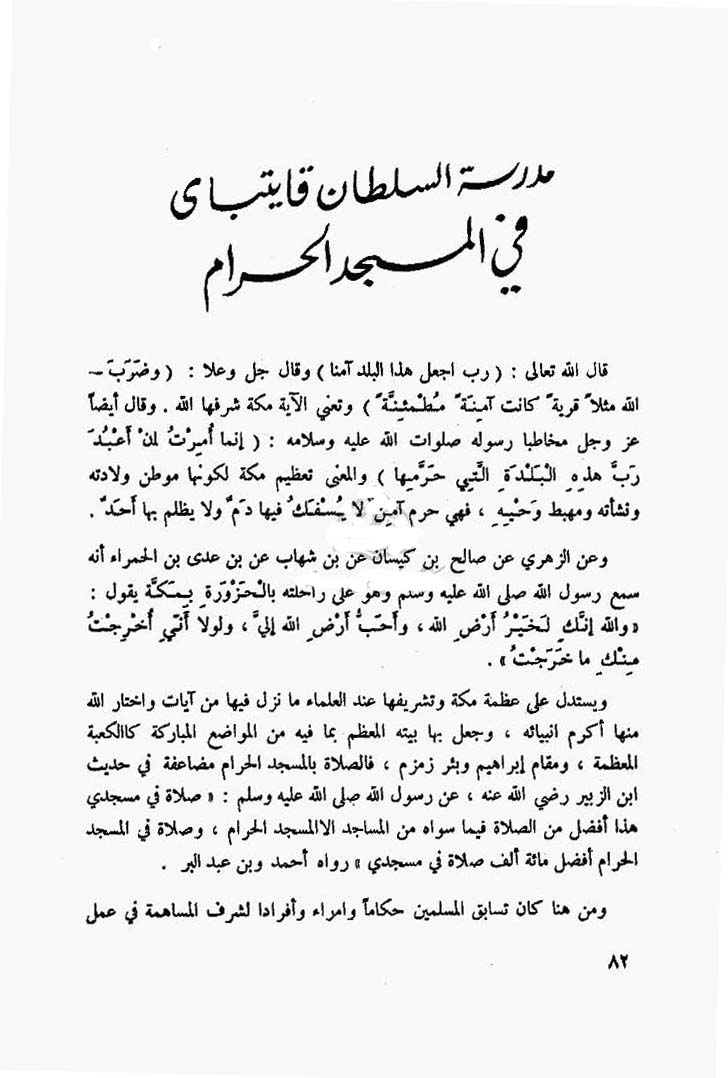 مدرسة السلطان قايتباى
في المسجد الحرام
قال الله تعالى : ( رب اجعل هذا البلد آمنا ) وقال جل وعلا : ( وضَرَبَ –
الله مثلاً قريةً كانت آمِنَةً مُطْمئِنَّةً ) وتعني الآية مكة شرفها الله . وقال أيضاً
عز وجل مخاطبا رسوله صلوات الله عليه وسلامه : ( إنما أُمِرْتُ لمنْ أعْبُدَ
رَبَّ هذِهِ الْبَلْدَةِ الَّتِي حَرَّمِها ) والمعنى تعظيم مكة لكونها موطن ولادته
ونشأته ومهبط وَحْيِهِ ، فهي حرم آمِنٌ لا يُسْفَكُ فيها دَمٌ ولا يظلم بها أحَدٌ .
وعن الزهري عن صالح بن كيسان عن بن شهاب عن بن عدى بن الحمراء أنه
سمع رسول الله صلى الله عليه وسلم وهو على راحلته بالْحَزْوَرَةِ بِمَكَّةَ يقول :
«والله إنَّكِ لَخَيْرُ أرْضِ الله ، وأحَبُّ أرْضِ الله إليَّ ، ولولا أنّي أُخْرِجْتُ
مِنْكِ ما خَرَجْتُ» .
ويستدل على عظمة مكة وتشريفها عند العلماء ما نزل فيها من آيات واختار الله
منها أكرم انبيائه ، وجعل بها بيته المعظم بما فيه من المواضع المباركة كاالكعبة
المعظمة ، ومقام إبراهيم وبئر زمزم ، فالصلاة بالمسجد الحرام مضاعفة في حديث
ابن الزبير رضي الله عنه ، عن رسول الله صلى الله عليه وسلم : « صلاة في مسجدي
هذا أفضل من الصلاة فيما سواه من المساجد الاالمسجد الحرام ، وصلاة في المسجد
الحرام أفضل مائة ألف صلاة في مسجدي » رواه أحمد وبن عبد البر .
ومن هنا كان تسابق المسلمين حكاماً وامراء وأفرادا لشرف المساهمة في عمل
٨٢